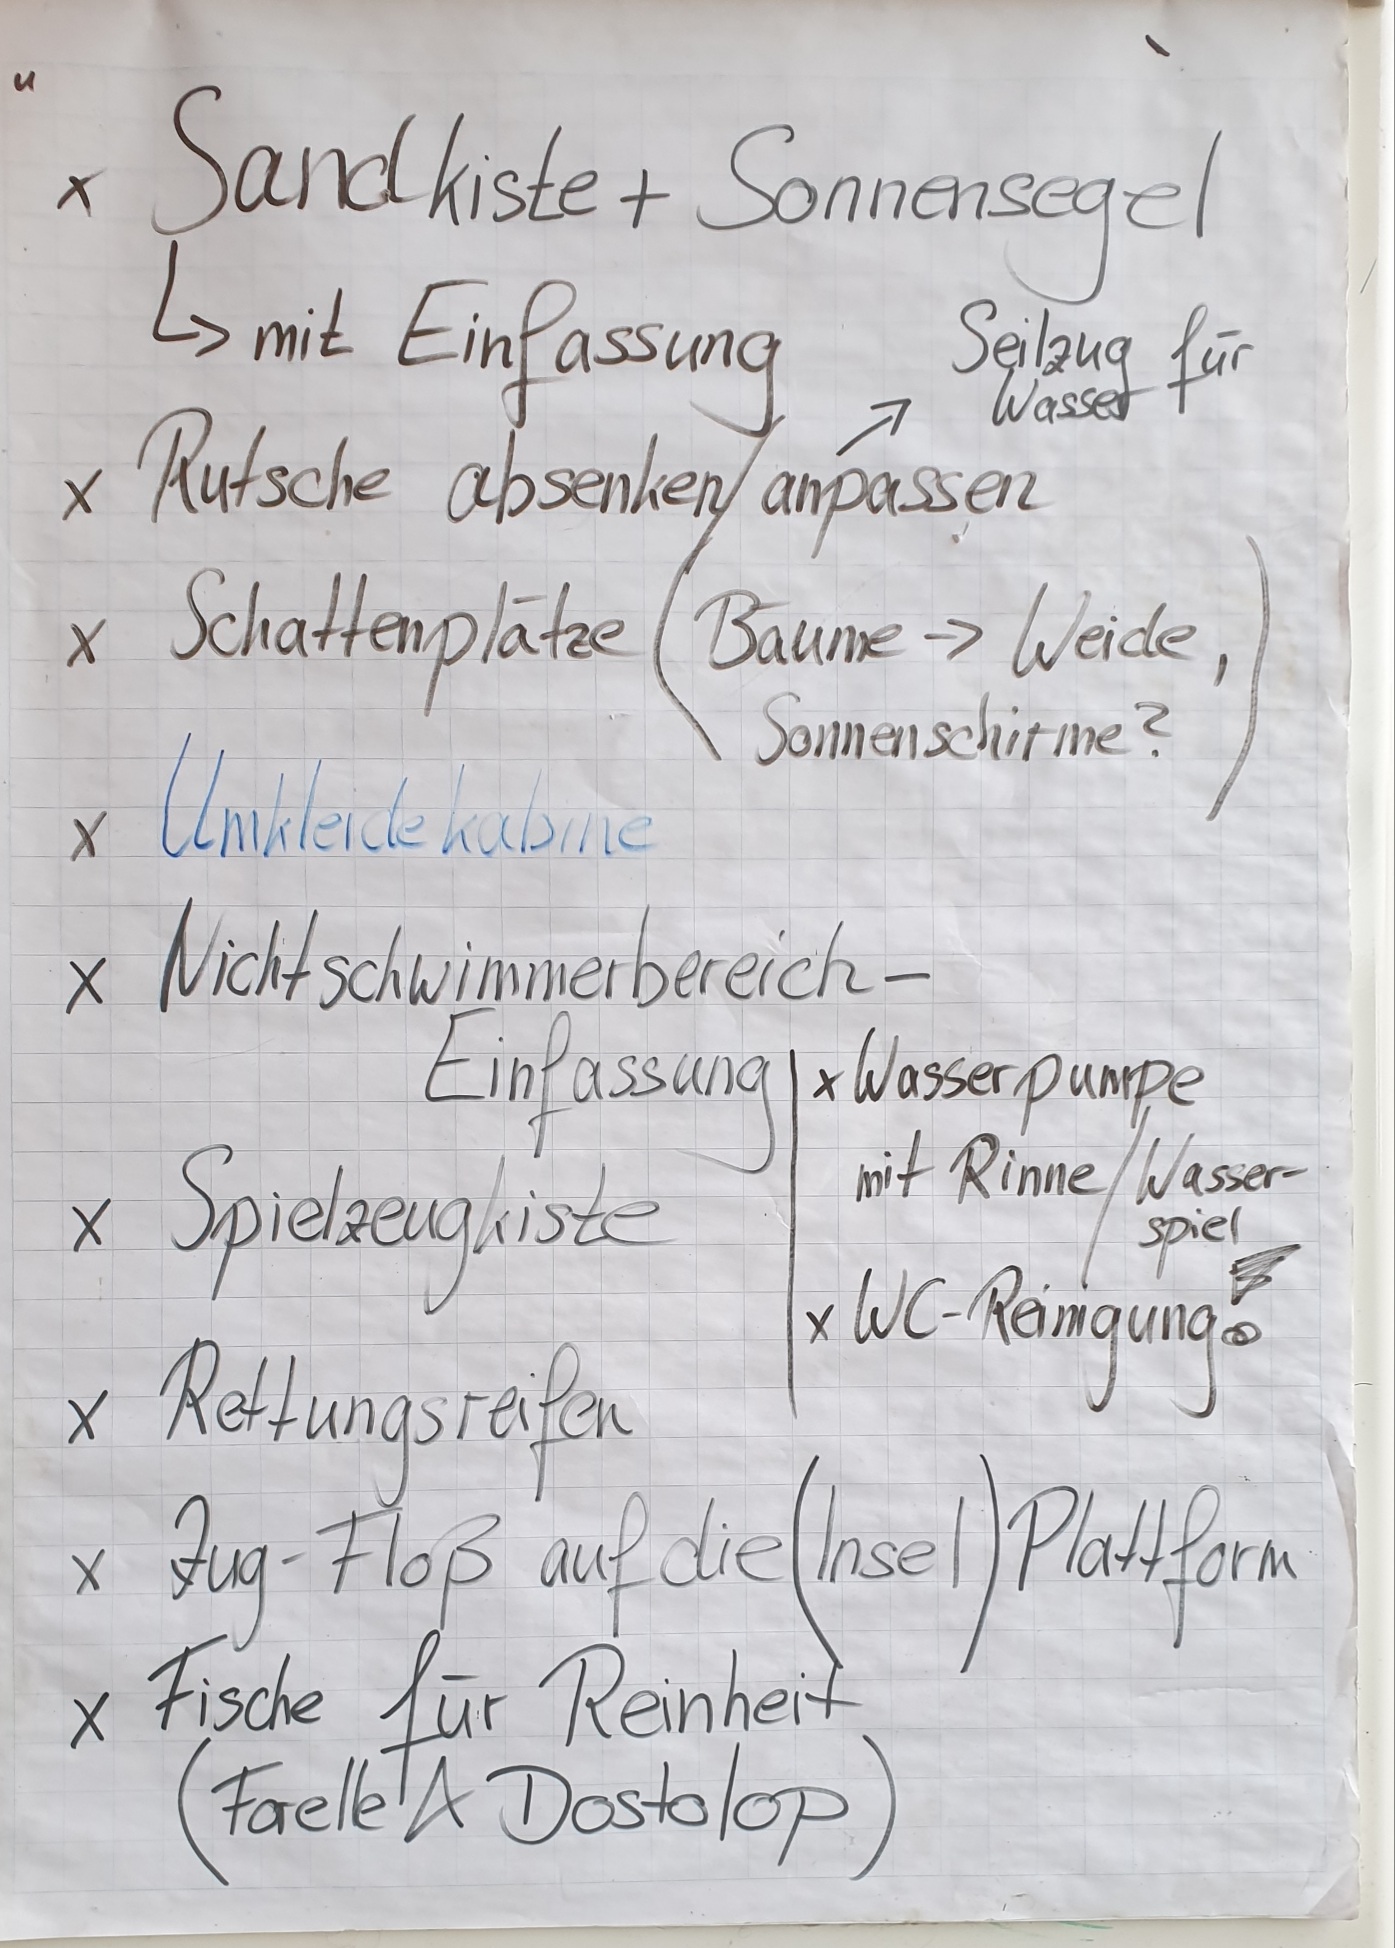 x Sandkiste + Sonnensegel
↳ mit Einfassung
Seilzug für
Wasser
x Rutsche absenken/anpassen
x Schattenplätze (Bäume -> Weide,
Sonnenschirme?)
x Umkleidekabine
x Nichtschwimmerbereich-
Einfassung
x Spielzeugkiste
x Wasserpumpe
mit Rinne/Wasser-
spiel
x WC-Reinigung!
x Rettungsreifen
x Zug-Floß auf die (Insel) Plattform
x Fische für Reinheit
(Forelle Dostolop)